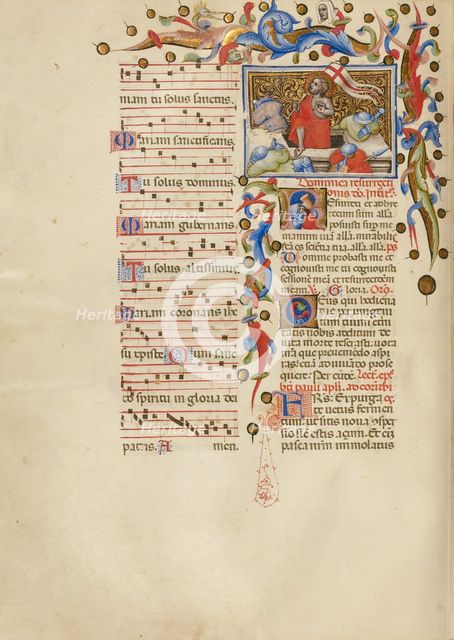 mam tu solus sanctus.
Mariam sanctificans.
Tu solus dominus.
Mariam gubernans.
Tu solus altissimus.
Mariam coronans ihe
su christe Cum sanc
to spiritu in gloria dei
patris. A men.
Dominica resurrecti
onis
Resurrexi et adhuc
tecum sum alla.
posuisti sup me
manum tua alla. mirabilis
fca es scientia tua alla. alla. ps
Domine probasti me et
cognovisti me tu cognovisti
sessionem meam et resurrectionem
meam. Gloria. Oro.
Deus qui hodierna
die
tatis nobis aditum de
victa morte reserasti. vota
nra que preveniendo aspi
ras. etiam adiuvando prose
quere. Per eundem. Lect. epl'e
bti pauli apli. ad corinth
FRS. Expurgate
vetus fermen
tum. ut sitis nova conspe
sio sicut estis açimi. Et eni
pasca nrm immolatus
Heritage
Heritage
Heritage
Heritage